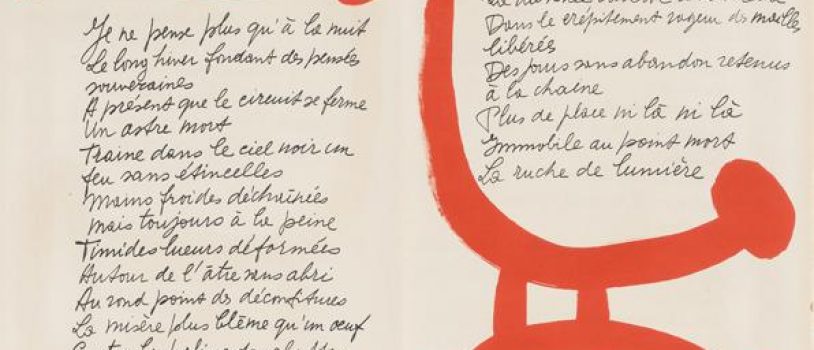 Je ne pense plus qu'à la nuit
Le long hiver fondant des pensées
souveraines
A présent que le circuit se ferme
Un astre mort
Traine dans le ciel noir un
feu sans étincelles
Mains froides déchaînées
Mais toujours à la peine
Timides lueurs déformées
Autour de l'âtre sans abri
Au rond point des déconfitures
La misère plus blême qu'un œuf
Dans le crépitement rageur des mailles
libérés
Des jours sans abandon retenus
à la chaine
Plus de place ni là ni là
Immobile au point mort
La ruche de lumière